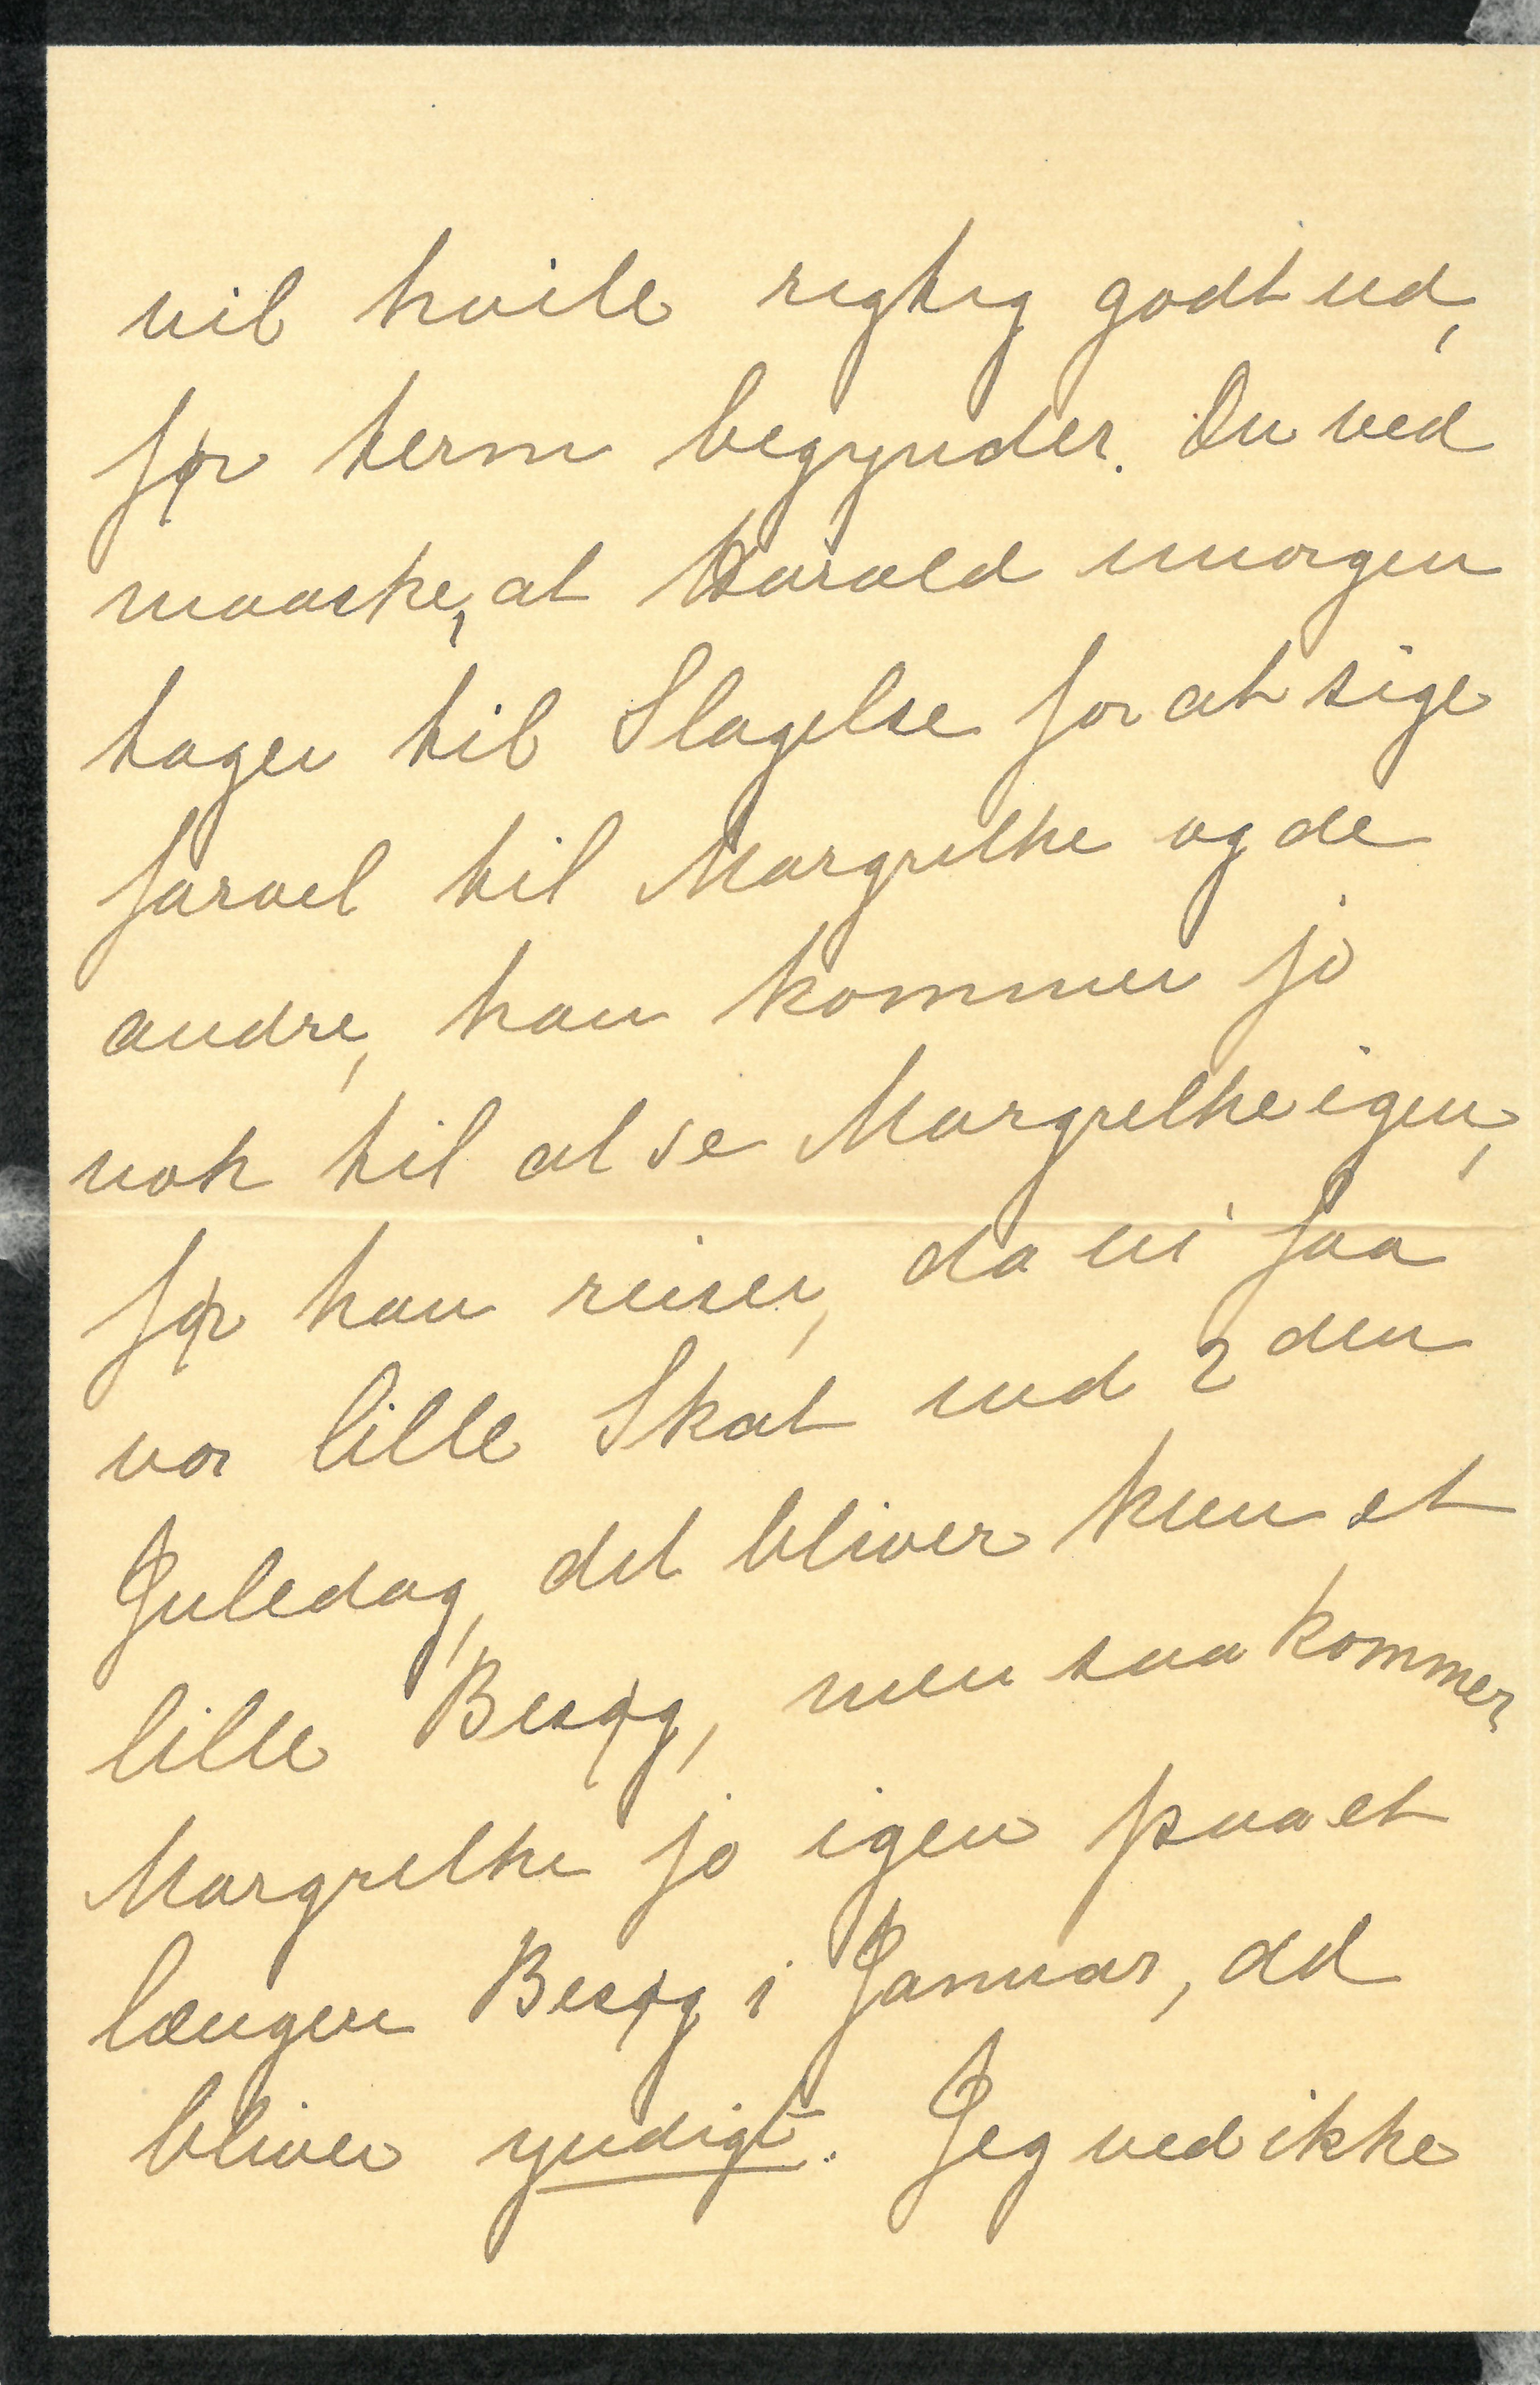 vil hvile rigtig godt ud,
før term begynder. Du ved
maaske, at Harald imorgen
tager til Slagelse for at sige
farvel til Margrethe og de
andre, han kommer jo
nok til at se Margrethe igen,
før han reiser, da vi faa
vor lille Skat ind 2den
Juledag, det bliver kun et
lille Besøg, men saa kommer
Margrethe jo igen paa et
længere Besøg i Januar, det
bliver yndigt. Jeg ved ikke